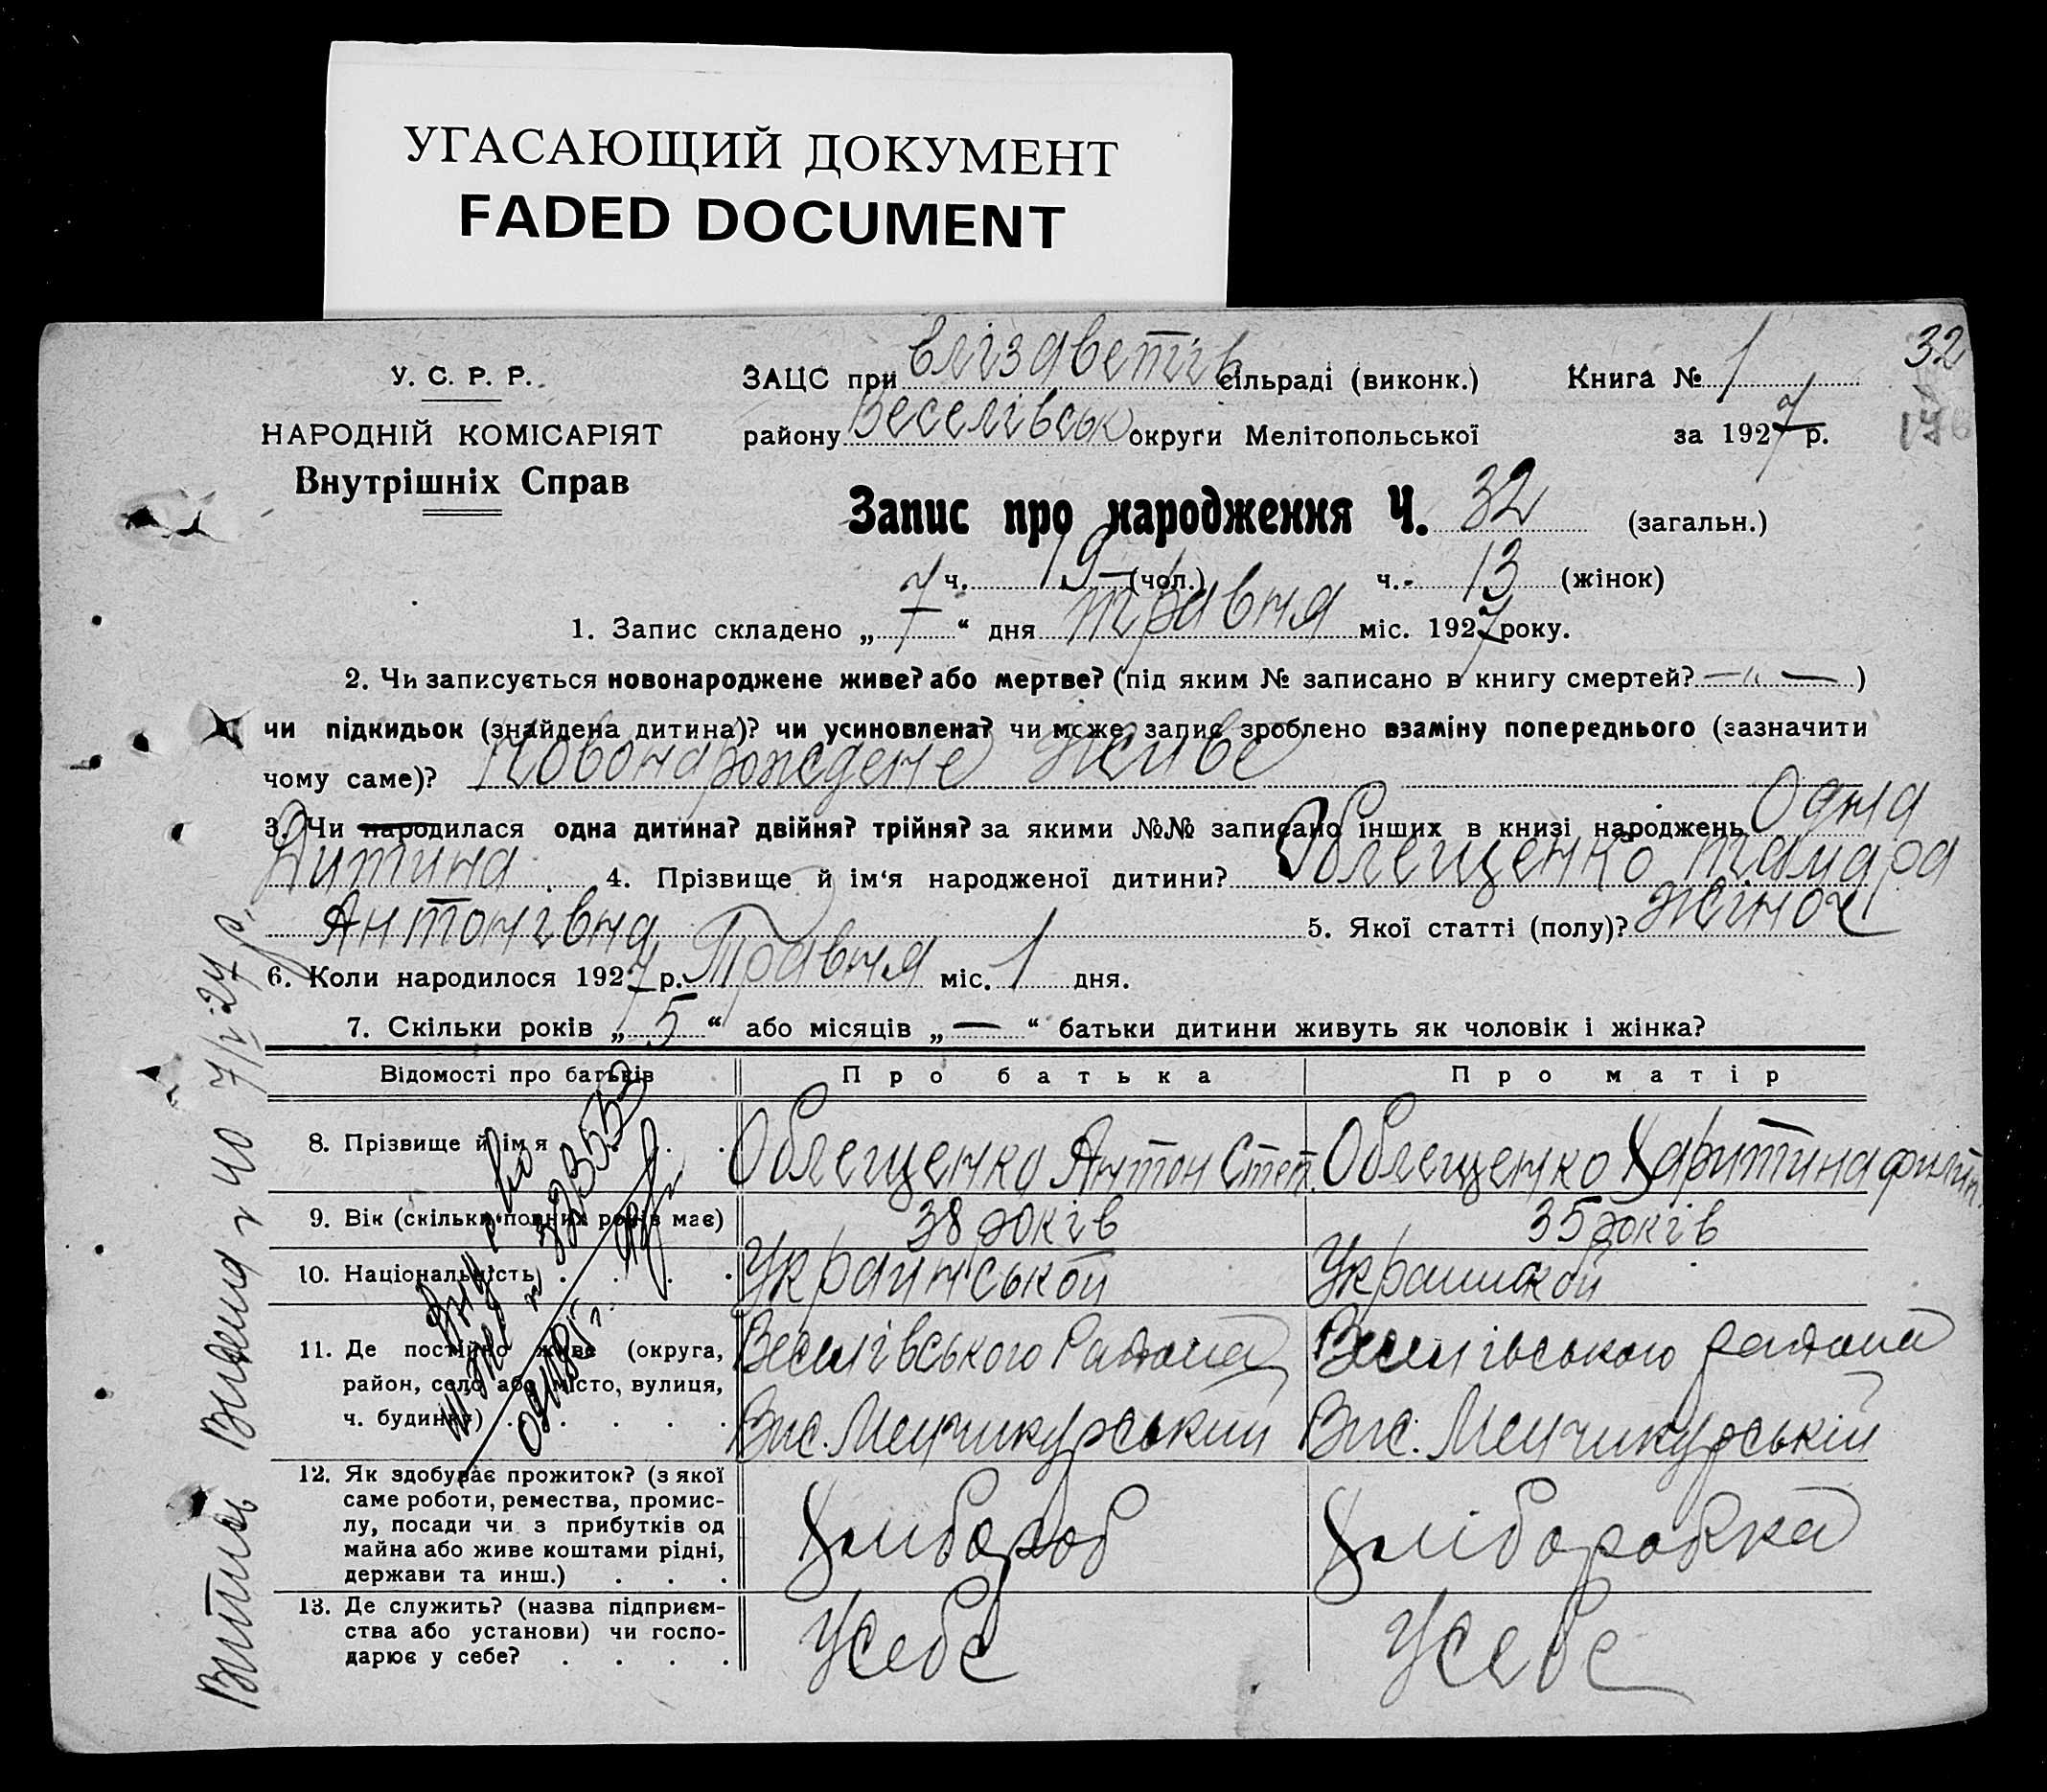 УГАСАЮЩИЙ ДОКУМЕНТ
FADED DOCUMENT
32
У. С. Р. Р.
НАРОДНІЙ КОМІСАРІЯТ
Внутрішніх Справ
ЗАЦС при Єлізаветів сільраді (виконк.) Книга № 1
району Веселівськ округи Мелітопольської за 1927 р.
Запис про народження Ч. 32 (загальн.)
ч. 19 (чол.) ч. 13 (жінок)
1. Запис складено „ 7 “ дня травня міс. 1927 року.
2. Чи записується новонароджене живе? або мертве? (під яким № записано в книгу смертей? — „ — )
чи підкидьок (знайдена дитина)? чи усиновлена? чи може запис зроблено взаміну попереднього (зазначити
чому саме)? Новонарождене живе
3. Чи народилася одна дитина? двійня? трійня? за якими №№ записано інших в книзі народжень Одна
Дитина 4. Прізвище й ім‘я народженої дитини? Облещенко тамара
Антонівна 5. Якої статті (полу)? жіноч
6. Коли народилося 1927 р. Травня міс. 1 дня.
7. Скільки років „ 5 “ або місяців „ — “ батьки дитини живуть як чоловік і жінка?
Відомості про батьків Про батька Про матір
8. Прізвище й ім я . . . Облещенко Антон Степ. Облещенко Харитина филип.
9. Вік (скільки повних років має) 38 років 35 років
10. Національність . . . . Украинськой Украинской
11. Де постійно живе (округа, Веселівського Района Веселівського района
район, село або місто, вулиця,
ч. будинку) . . . . . . Вис. Менчикурський Вис. Менчикурській
12. Як здобуває прожиток? (з якої
саме роботи, ремества, промис-
лу, посади чи з прибутків од Хлібороб Хліборобка
майна або живе коштами рідні,
держави та инш.) . . .
13. Де служить? (назва підприєм-
ства або установи) чи госпо- Усебе Усебе
дарює у себе? . . . .